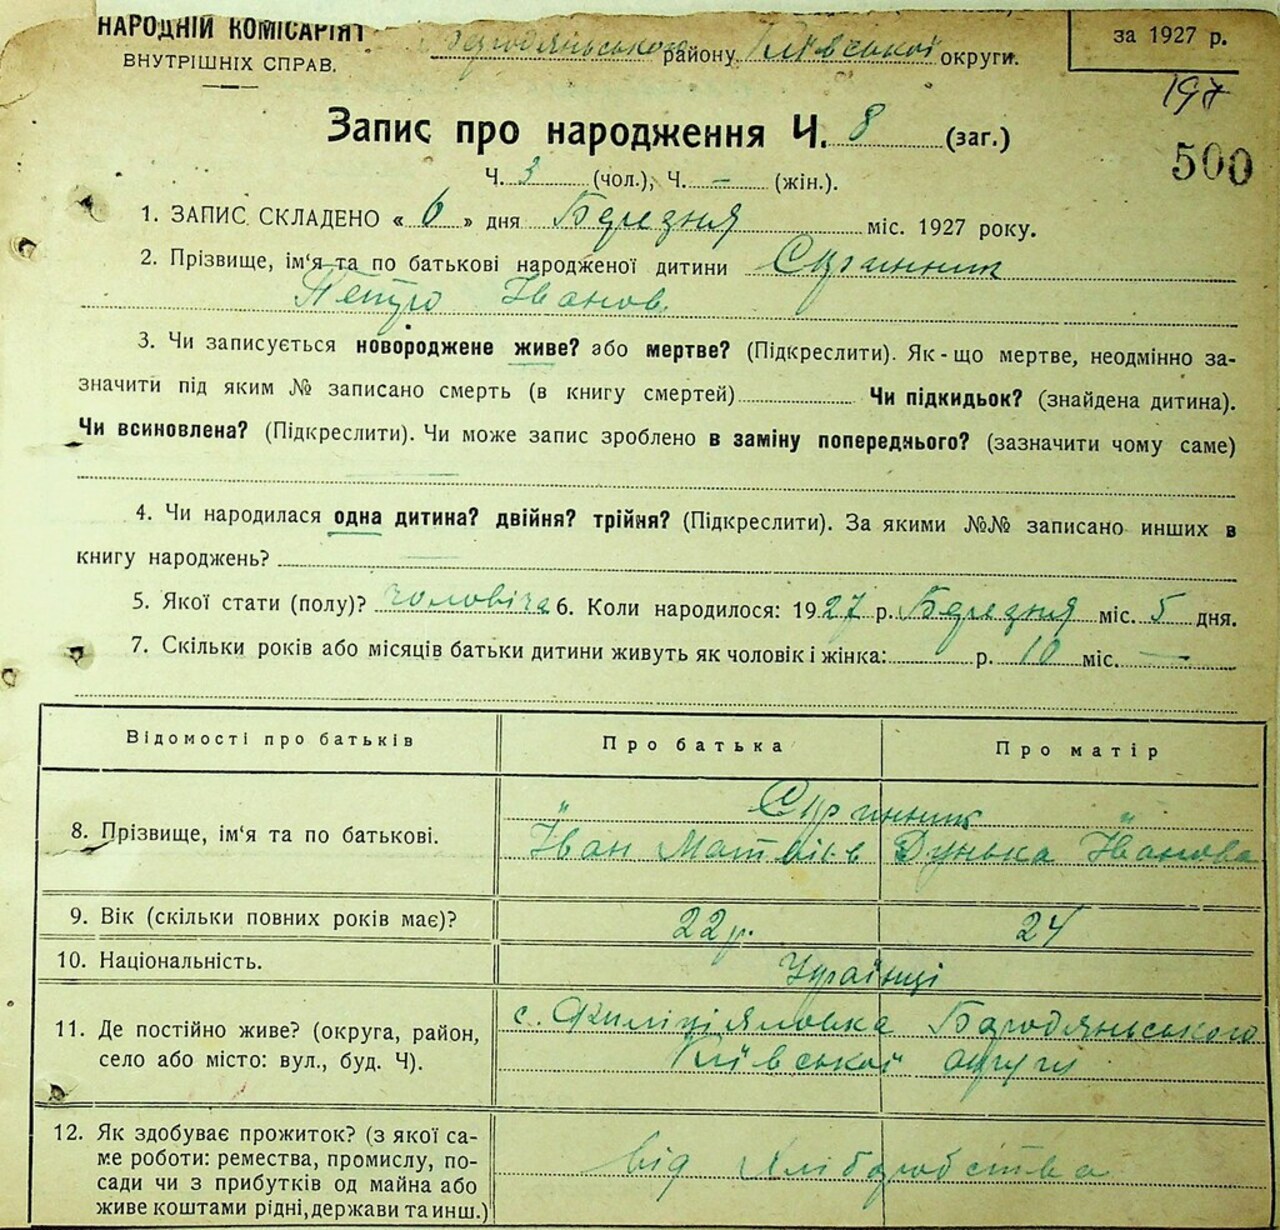 НАРОДНІЙ КОМІСАРІЯТ
ВНУТРІШНІХ СПРАВ.
Бородяньського району Київської округи.
за 1927 р.
197
500
Запис про народження Ч. 8 (заг.)
Ч. 3 (чол.), Ч. — (жін.).
1. ЗАПИС СКЛАДЕНО « 6 » дня Березня міс. 1927 року.
2. Прізвище, ім'я та по батькові народженої дитини Скринник
Петро Іванов.
3. Чи записується новороджене живе? або мертве? (Підкреслити). Як-що мертве, неодмінно за-
значити під яким № записано смерть (в книгу смертей) Чи підкидьок? (знайдена дитина).
Чи всиновлена? (Підкреслити). Чи може запис зроблено в заміну попереднього? (зазначити чому саме)
4. Чи народилася одна дитина? двійня? трійня? (Підкреслити). За якими №№ записано инших в
книгу народжень?
5. Якої стати (полу)? чоловіча 6. Коли народилося: 1927 р. Березня міс. 5 дня.
7. Скільки років або місяців батьки дитини живуть як чоловік і жінка: р. 10 міс. —
Відомості про батьків Про батька Про матір
8. Прізвище, ім'я та по батькові. " Скринник "
Іван Матвіїв Дунька Іванова
9. Вік (скільки повних років має)? 22 р. 24
10. Національність. Українці
11. Де постійно живе? (округа, район,
село або місто: вул., буд. Ч).
с. Бородяньського
Київської округи
12. Як здобуває прожиток? (з якої са-
ме роботи: ремества, промислу, по-
сади чи з прибутків од майна або
живе коштами рідні, держави та инш.)
від Хліборобства